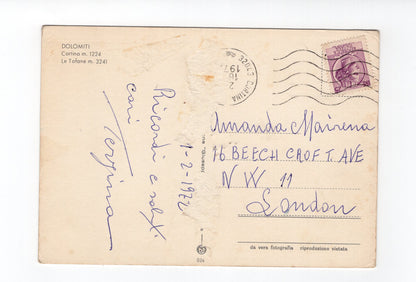 DOLOMITI
Cortina m. 1224
Le Tofane m. 3241
32043 CORTINA
Ricordi e saluti
cari
1-2-1972
Amanda Mairena
76 BEECH CROFT. AVE
N W 11
London
da vera fotografia riproduzione vietata